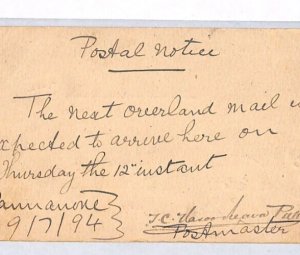 Postal Notice
The next overland mail is
expected to arrive here on
Thursday the 12th instant
Cannanore
9/7/94
Postmaster